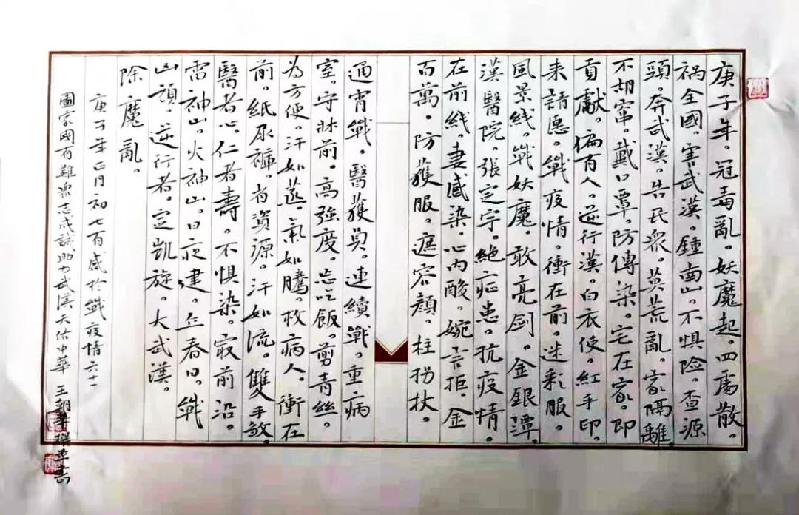 庚子年。冠毒亂。妖魔起。四處散。
禍全國。害武漢。鍾南山。不懼險。查源
頭。奔武漢。告民衆。莫荒亂。家隔離。
不胡竄。戴口罩。防傳染。宅在家。即
貢獻。偏有人。逆行漢。白衣使。紅手印。
来請愿。戰疫情。衝在前。迷彩服。
風景线。戰妖魔。敢亮劍。金銀潭。
漢醫院。張定宇。绝症患。抗疫情。
在前线。妻感染。心内酸。婉言拒。金
百萬。防護服。遮容颜。柱拐扶。
通宵戰。醫護員。連續戰。重病
室。守牀前。高强度。忘吃飯。剪青丝。
为方便。汗如蒸。氣如騰。救病人。衝在
前。纸尿褲。省資源。汗如流。雙手放。
醫者心。仁者壽。不惧染。最前沿。
雷神山。火神山。日夜建。立春日。戰
山頭。逆行者。定凱旋。大武漢。
除魔亂。
庚子年正月初七有感於戰疫情六十
國家國有難衆志成城助力武漢天佑中華 王朝